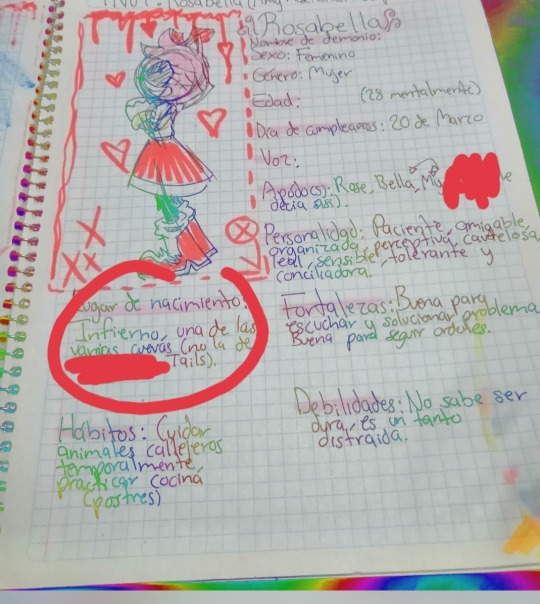 Rosabella
Nombre de demonio:
Sexo: Femenino
Género: Mujer
Edad: (28 mentalmente)
Día de cumpleaños: 20 de Marzo
Voz:
Apodo(s): Rose, Bella, My
decía así).
Personalidad: Paciente, amigable,
organizada, perceptiva, cautelosa,
leal, sensible, tolerante y
conciliadora.
Lugar de nacimiento:
Infierno, una de las
varias cuevas (no la de
Tails).
Fortalezas: Buena para
escuchar y solucionar problema
Buena para seguir ordenes.
Habitos: Cuidar
animales callejeros
temporalmente,
practicar cocina
(postres)
Debilidades: No sabe ser
dura, es un tanto
distraida.